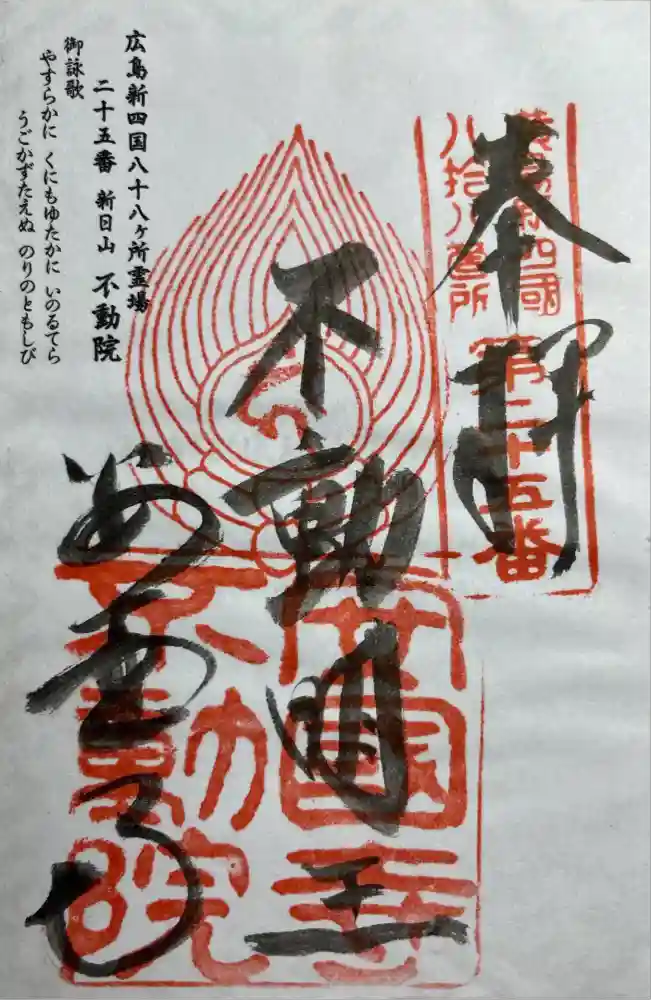 奉拝
廣島新四國
八拾八箇所
第二十五番
不動明王
安國寺
不動院
広島新四国八十八ヶ所霊場
二十五番 新日山 不動院
御詠歌
やすらかに くにもゆたかに いのるてら
うごかずたえぬ のりのともしび